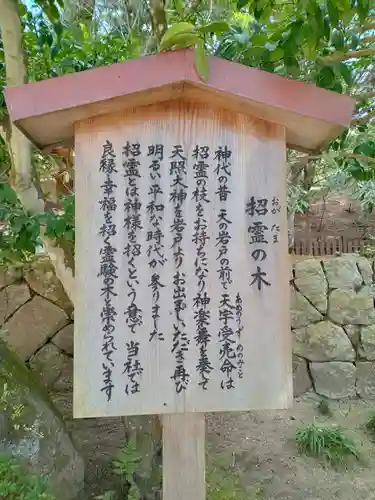 招霊の木
おがたま
神代の昔 天の岩戸の前で天宇受売命は
あめのうずめのみこと
招霊の枝をお持ちになり神楽舞を奏で
天照大神を岩戸よりお出ましいただき再び
明るい平和な時代が参りました
招霊とは神様を招くという意で 当社では
良縁 幸福を招く霊験の木と崇められています